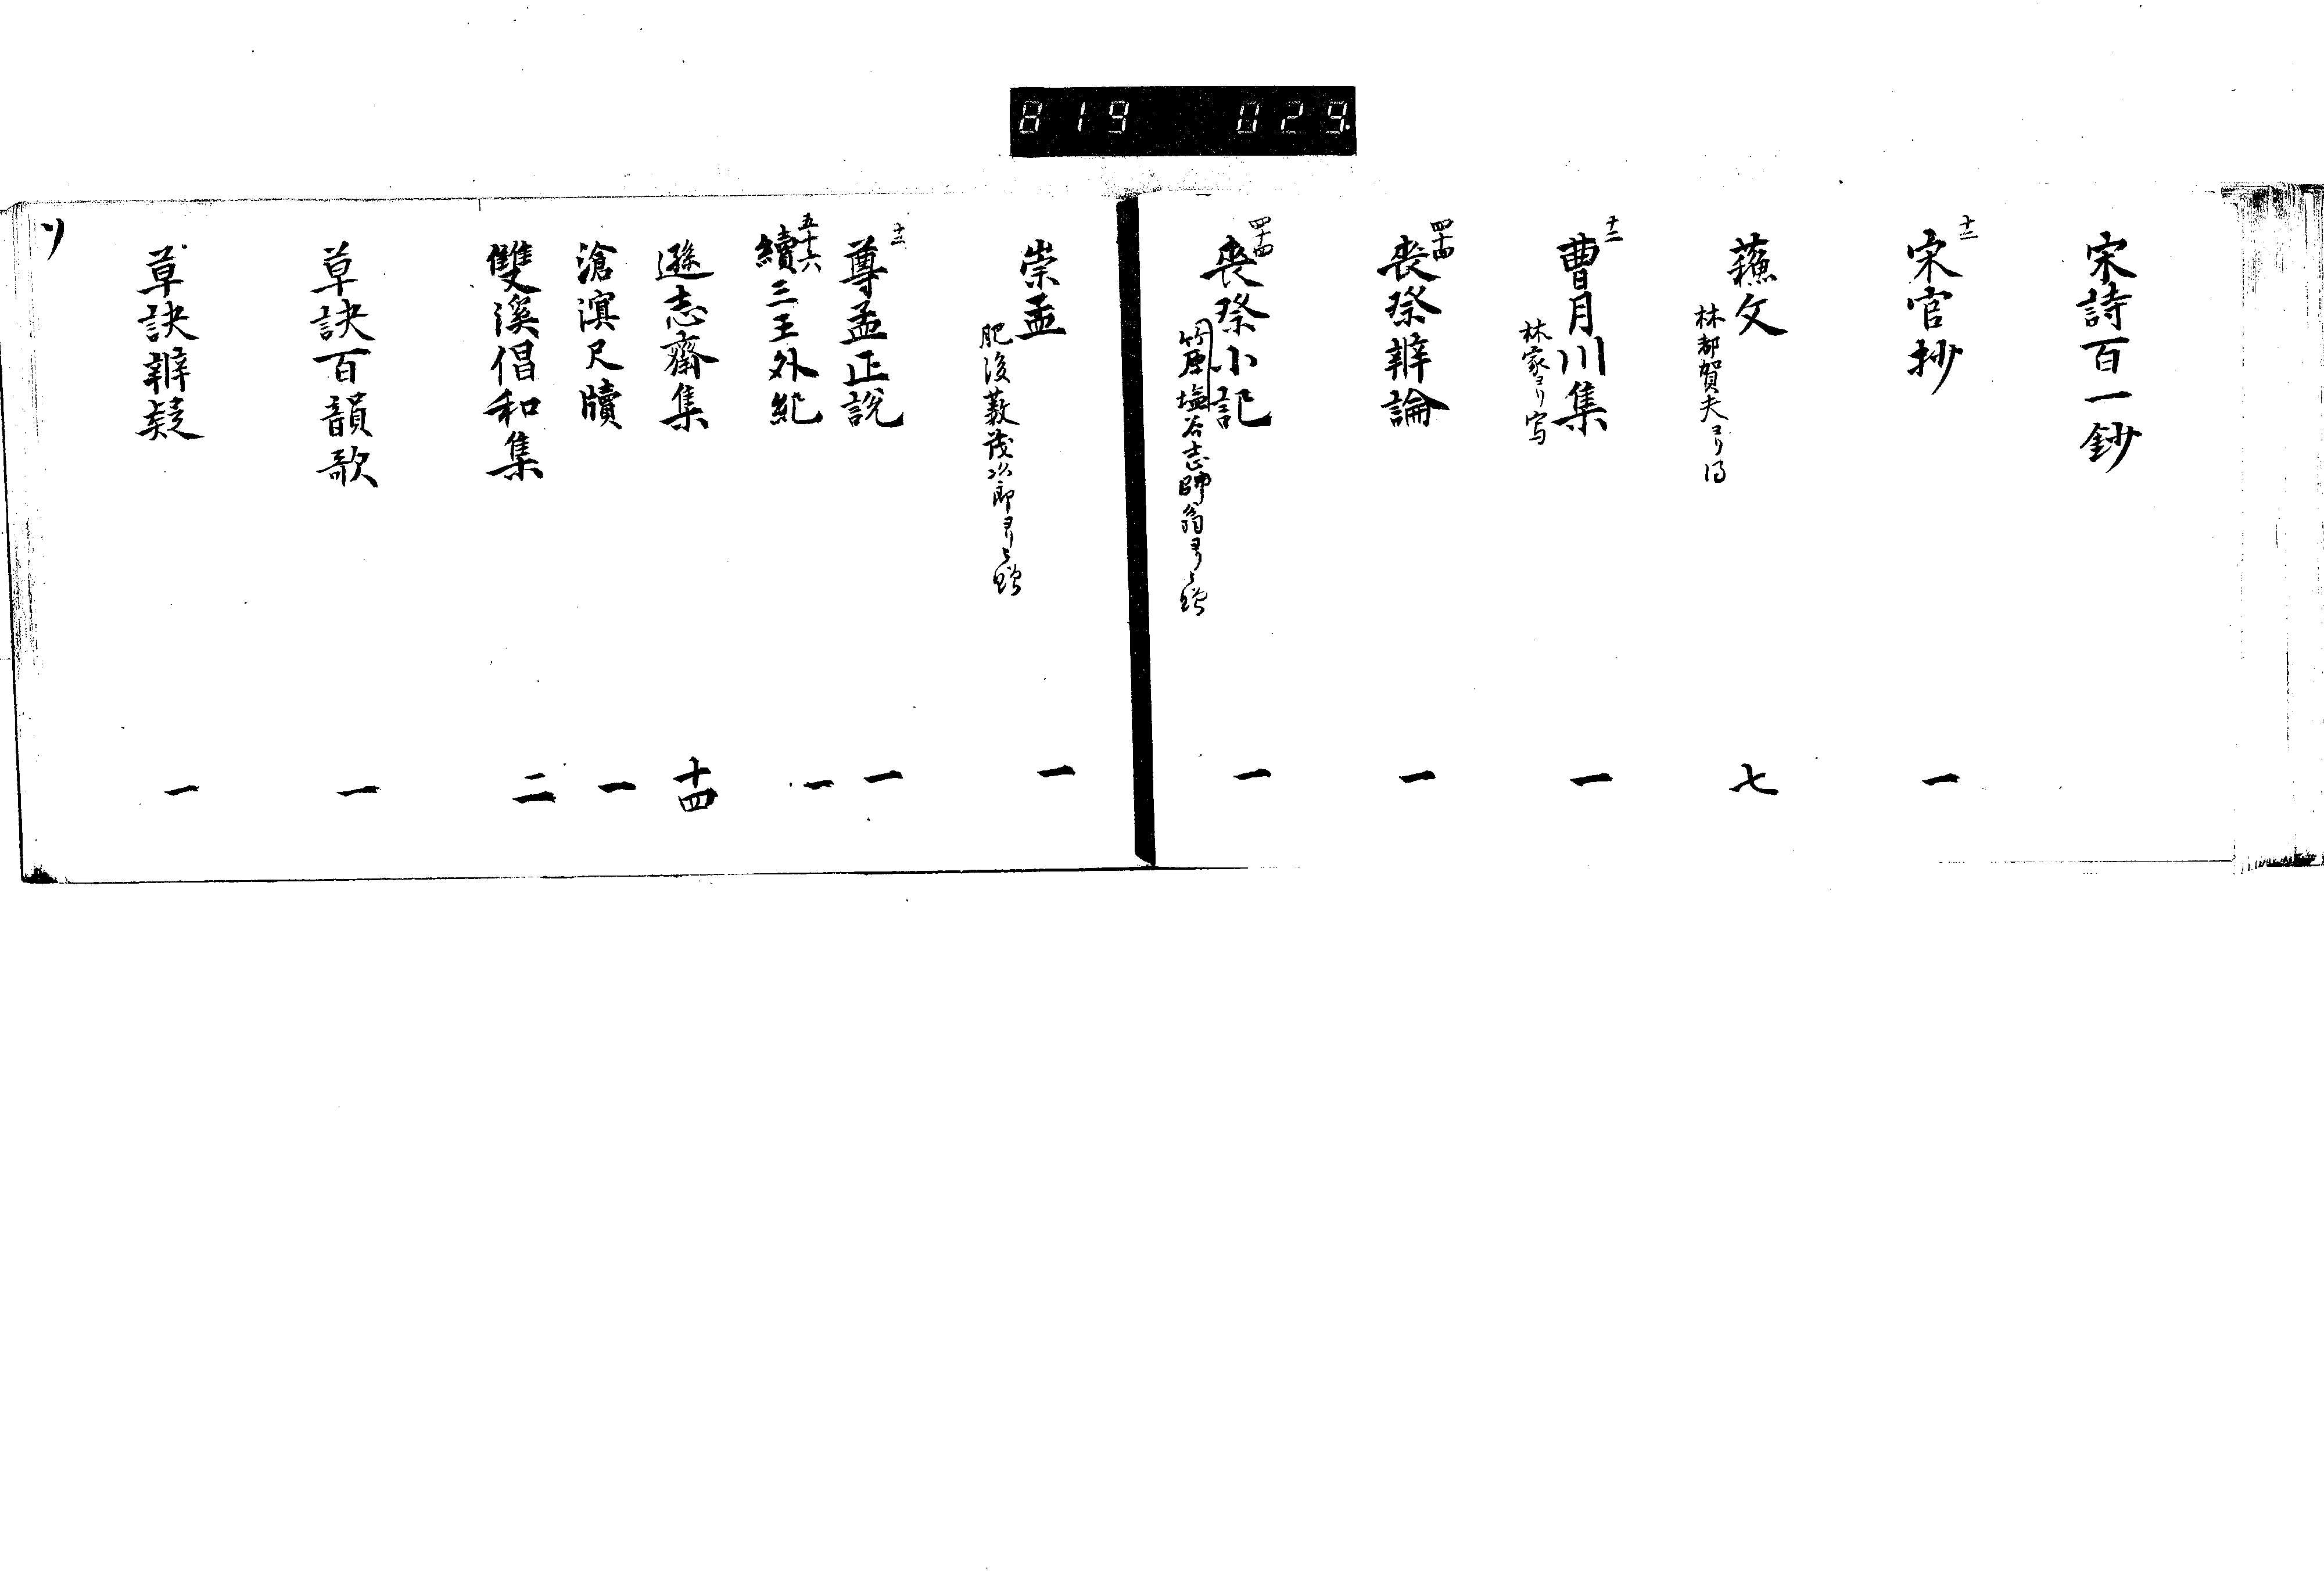 819 029
宋詩百一鈔
十二
宋官抄 一
蘓文 七
林都賀夫ヨリ得
十二
曹月川集 一
林家ヨリ写
四十四
喪祭辨論 一
四十四
喪祭小記 一
竹原塩谷志帥翁ヨリ被贈
崇孟 一
肥後薮茂次郎ヨリ被贈
十三
尊孟正説 一
五十六
續三王外紀 一
遜志齋集 十四
滄溟尺牘 一
雙溪倡和集 二
草訣百韻歌 一
草訣辨疑 一
ソ